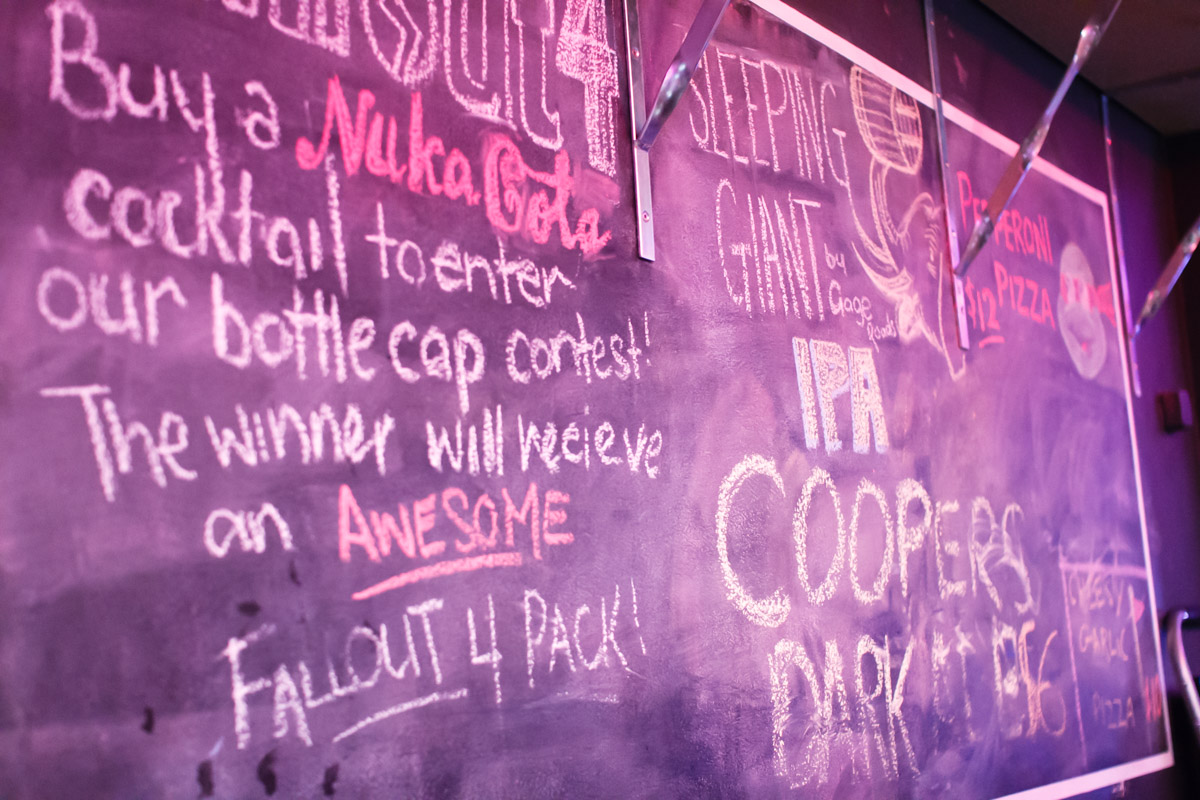 4
Buy a Nuka Cola
cocktail to enter
our bottle cap contest!
The winner will recieve
an AWESOME
FALLOUT 4 PACK!
SLEEPING
GIANT by
Gage
Roads
IPA
COOPERS
DARK
PEPPERONI
PIZZA
$12
CHEESY
GARLIC
PIZZA